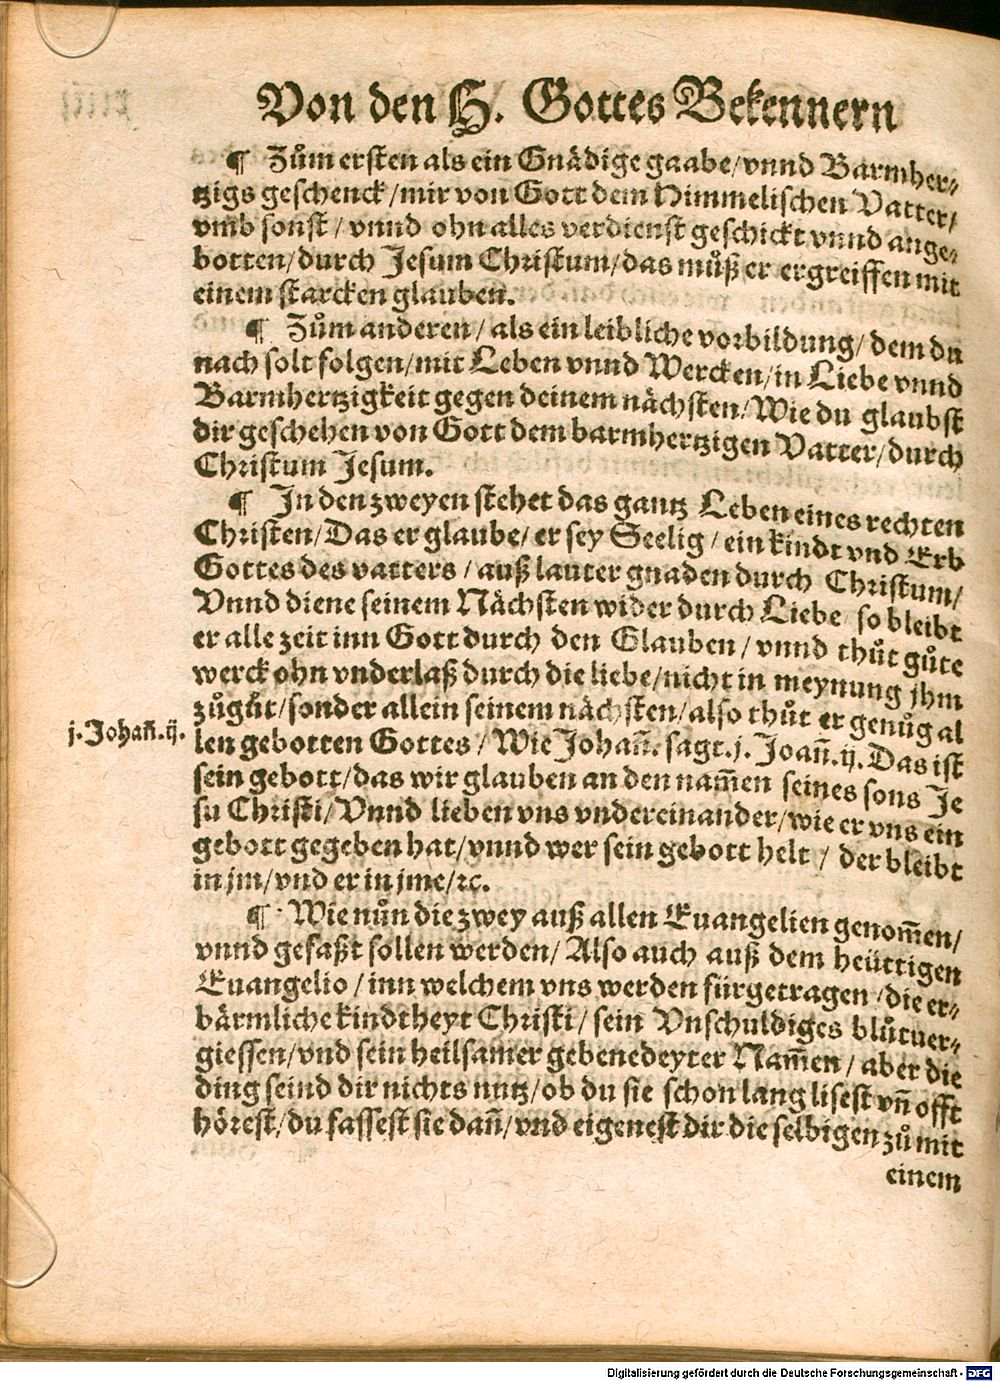 Von den H. Gottes Bekennern
¶ Zům ersten als ein Gnädige gaabe/vnnd Barmher-
tzigs geschenck/mir von Gott dem Himmelischen Vatter/
vmb sonst/vnnd ohn alles verdienst geschickt vnnd ange-
botten/durch Jesum Christum/das můß er ergreiffen mit
einem starcken glauben.
¶ Zům anderen/als ein leibliche vorbildung/dem du
nach solt folgen/mit Leben vnnd Wercken/in Liebe vnnd
Barmhertzigkeit gegen deinem nächsten/Wie du glaubst
dir geschehen von Gott dem barmhertzigen Vatter/durch
Christum Jesum.
¶ In den zweyen stehet das gantz Leben eines rechten
Christen/Das er glaube/er sey Seelig/ein kindt vnd Erb
Gottes des vatters/auß lauter gnaden durch Christum/
Vnnd diene seinem Nächsten wider durch Liebe so bleibt
er alle zeit inn Gott durch den Glauben/vnnd thůt gůte
werck ohn vnderlaß durch die liebe/nicht in meynung jhm
zůgůt/sonder allein seinem nächsten/also thůt er genůg al
j.Johañ.ij.
len gebotten Gottes/Wie Johañ. sagt.j. Joañ.ij. Das ist
sein gebott/das wir glauben an den nam̃en seines sons Je
su Christi/Vnnd lieben vns vndereinander/wie er vns ein
gebott gegeben hat/vnnd wer sein gebott helt/der bleibt
in jm/vnd er in jme/ꝛc.
¶ Wie nůn die zwey auß allen Euangelien genom̃en/
vnnd gefaßt sollen werden/Also auch auß dem heüttigen
Euangelio/inn welchem vns werden fürgetragen/die er-
bärmliche kindtheyt Christi/sein Vnschuldiges blůtuer-
giessen/vnd sein heilsamer gebenedeyter Nam̃en/aber die
ding seind dir nichts nutz/ob du sie schon lang lisest vñ offt
hörest/du fassest sie dañ/vnd eigenest dir die selbigen zů mit
einem
Digitalisierung gefördert durch die Deutsche Forschungsgemeinschaft - DFG